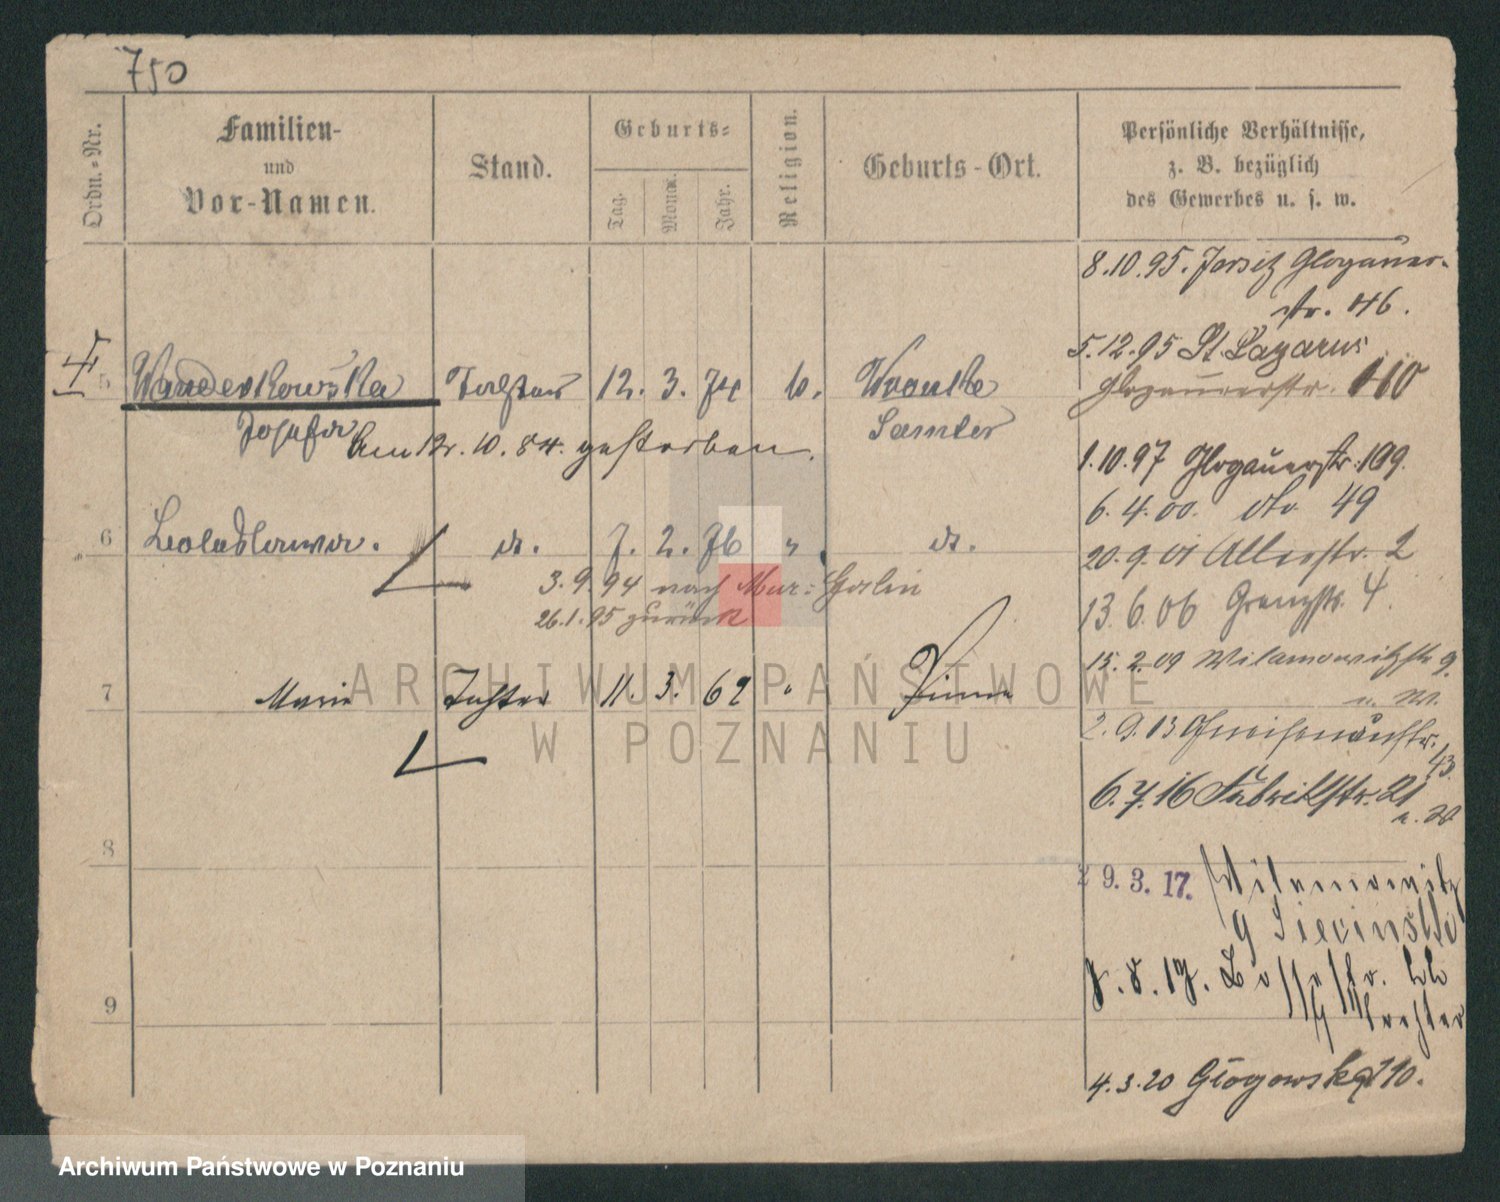 750
Ordn.-Nr.
Familien-
und
Vor-Namen.
Stand.
Geburts-
Tag.
Monat.
Jahr.
Religion.
Geburts-Ort.
Persönliche Verhältnisse,
z. B. bezüglich
des Gewerbes u. s. w.
8.10.95. Jersitz Glogauer-
str. 46.
5.12.95 St. Lazarus
Glogauerstr. 110
5 Wanderkowska Tochter 12. 3. 74 k. Wronke
Josefa Samter
am 12. 10. 84. gestorben.
1.10.97 Glogauerstr. 109.
6. 4. 00. dto 49
6 Leokadia do. 7. 2. 76 " do.
3. 9. 94 nach Mur: Goslin
26.1.95 zurück
20. 9. 01 Allerstr. 2
13. 6. 06 Grenzstr. 4.
15. 2. 09 Wilamowitzstr 9.
7 Marie Tochter 11. 3. 69 " Pinne
2. 9. 13 Gneisenaustr.
43.
6. 7. 16 Fabrikstr. 21
8
29. 3. 17. Wilamowitz
9
9
4. 3. 20 Glogowska 110.
ARCHIWUM PAŃSTWOWE
W POZNANIU
Archiwum Państwowe w Poznaniu